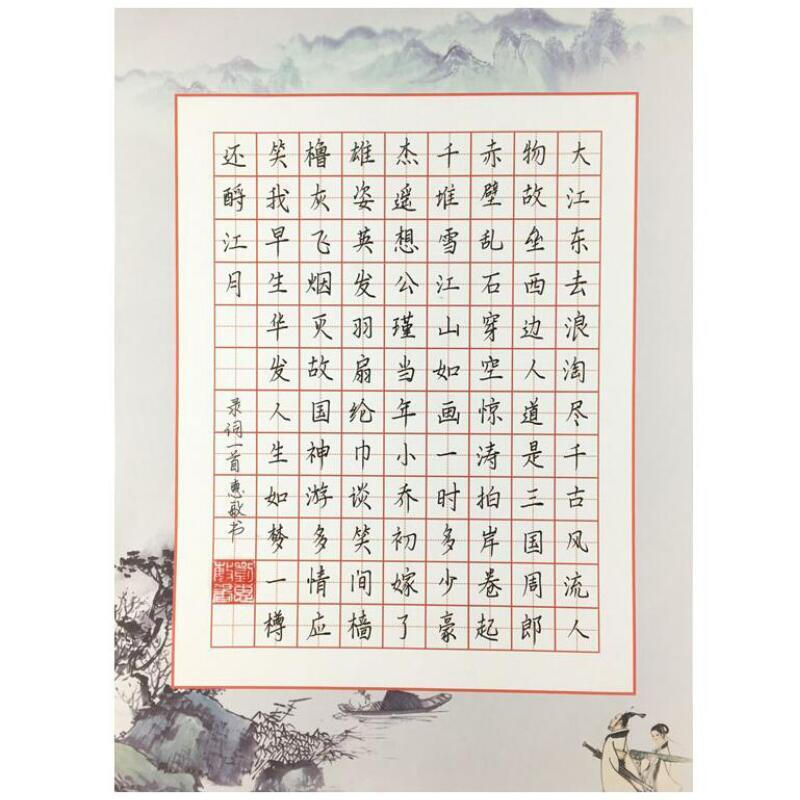 大江东去浪淘尽千古风流人
物故垒西边人道是三国周郎
赤壁乱石穿空惊涛拍岸卷起
千堆雪江山如画一时多少豪
杰遥想公瑾当年小乔初嫁了
雄姿英发羽扇纶巾谈笑间樯
橹灰飞烟灭故国神游多情应
笑我早生华发人生如梦一樽
还酹江月
录词一首 惠敏书
劉惠敏書